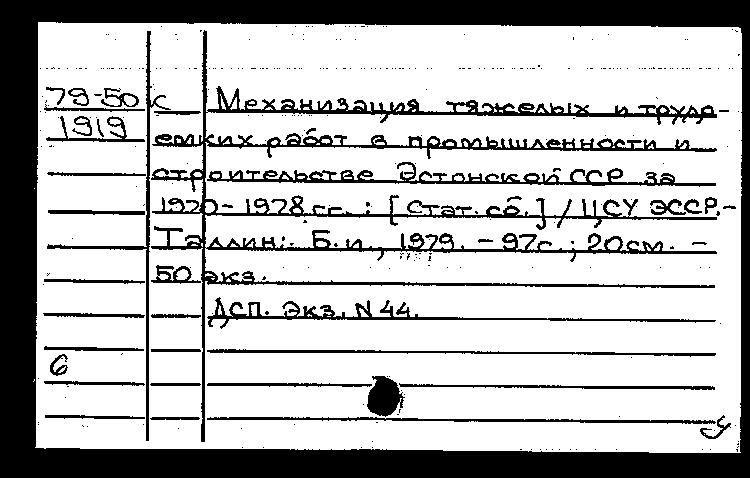 79-50 к Механизация тяжелых и трудо-
1919 емких работ в промышленности и
строительстве Эстонской ССР за
1970-1978 гг. : [Стат. сб.] / ЦСУ ЭССР.-
Таллин: Б. и., 1979. - 97с. ; 20см. -
50 экз.
ДСП. Экз. N 44.
6